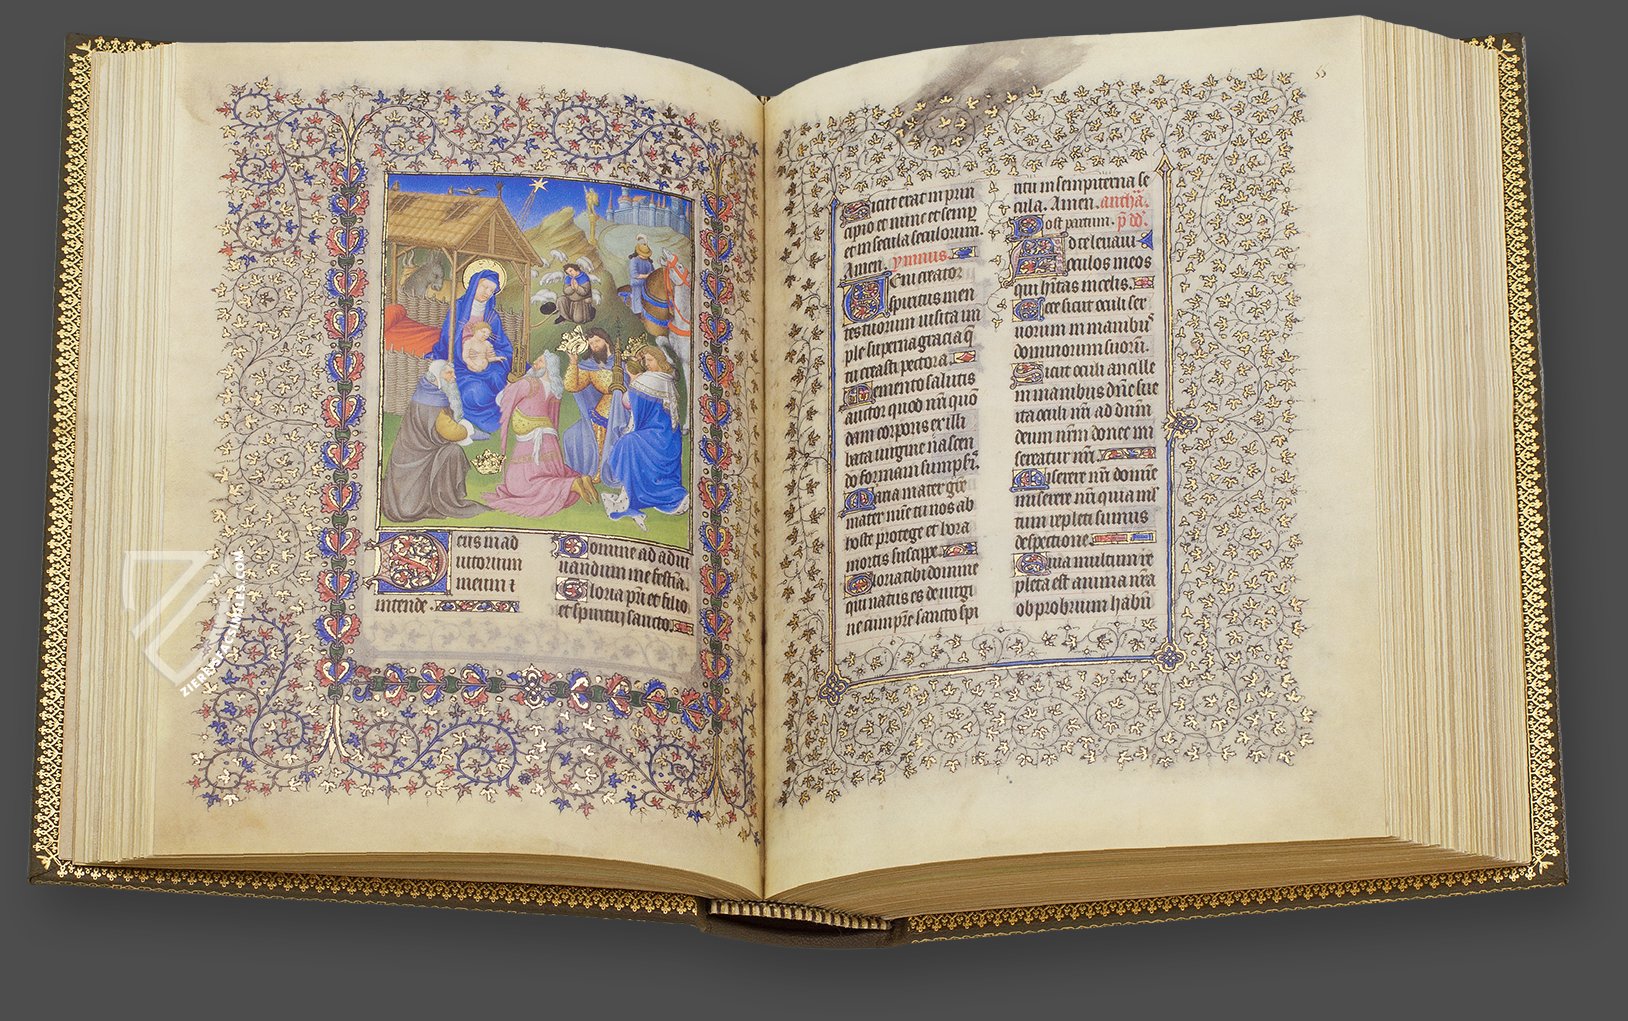 Deus in ad
iutorium
meum i
intende.
Domine ad adiu
uandum me festīa.
Gloria pr̄i et filio
et spiritui sancto.
Sicut erat in prin
cipio et nunc et semp̄
et in secula seculorum.
Amen. ymnus.
Ueni creator
spiritus men
tes tuorum uisita im
ple superna gracia q̄
tu creasti pectora.
Memento salutis
auctor quod nr̄i quō
dam corporis ex illi
bata uirgine nascen
do formam sumps̄.
Maria mater grē
mater mīe tu nos ab
hoste protege et hora
mortis suscipe.
Gloria tibi domine
qui natus es de uirgi
ne cum pr̄e sancto spi
ritu in sempiterna se
cula. Amen. anthā.
Post partum. p̄ dd̄.
Ad te leuaui
oculos meos
qui hītas in celis.
Ecce sicut oculi ser
uorum in manibus
dominorum suorū.
Sicut oculi ancille
in manibus dn̄e sue
ita oculi nr̄i ad dnm
deum nr̄m donec mi
sereatur nr̄i.
Miserere nr̄i domine
miserere nr̄i quia ml̄
tum repleti sumus
despectione.
Quia multum re
pleta est anima nr̄a
obprobrium habūn
ZIEREIS FACSIMILES.COM